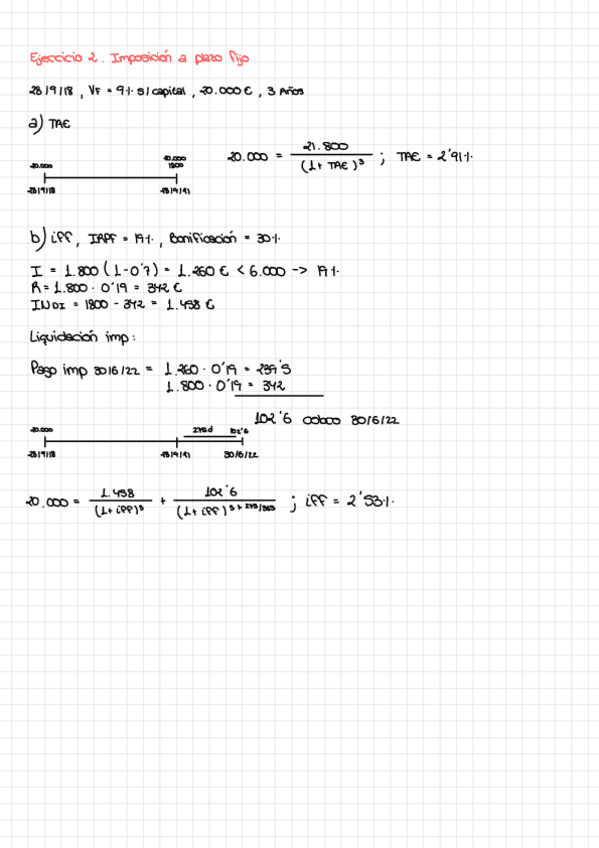 Ejercicio 2. Imposición a plazo fijo
28/9/18, VF = 9% s/capital, 20.000€, 3 Años
a) TAE
20.000 = 21.800 / (1+ TAE)^3 ; TAE = 2'91%
20.000
20.000
1800
28/9/18
28/9/21
b) iff, IRPF = 19%, Bonificación = 30%
I = 1.800 (1-0'7) = 1.260€ < 6.000 -> 19%
R = 1.800 · 0'19 = 342€
INDI = 1800 - 342 = 1.458€
Liquidación imp:
Pago imp 30/6/22 = 1.260 · 0'19 = 239'5
1.800 · 0'19 = 342
102'6 cobco 30/6/22
20.000
275d
102'6
28/9/18
28/9/21
30/6/22
20.000 = 1.458 / (1+ iff)^3 + 102'6 / (1+ iff)^3+275/365 ; iff = 2'53%